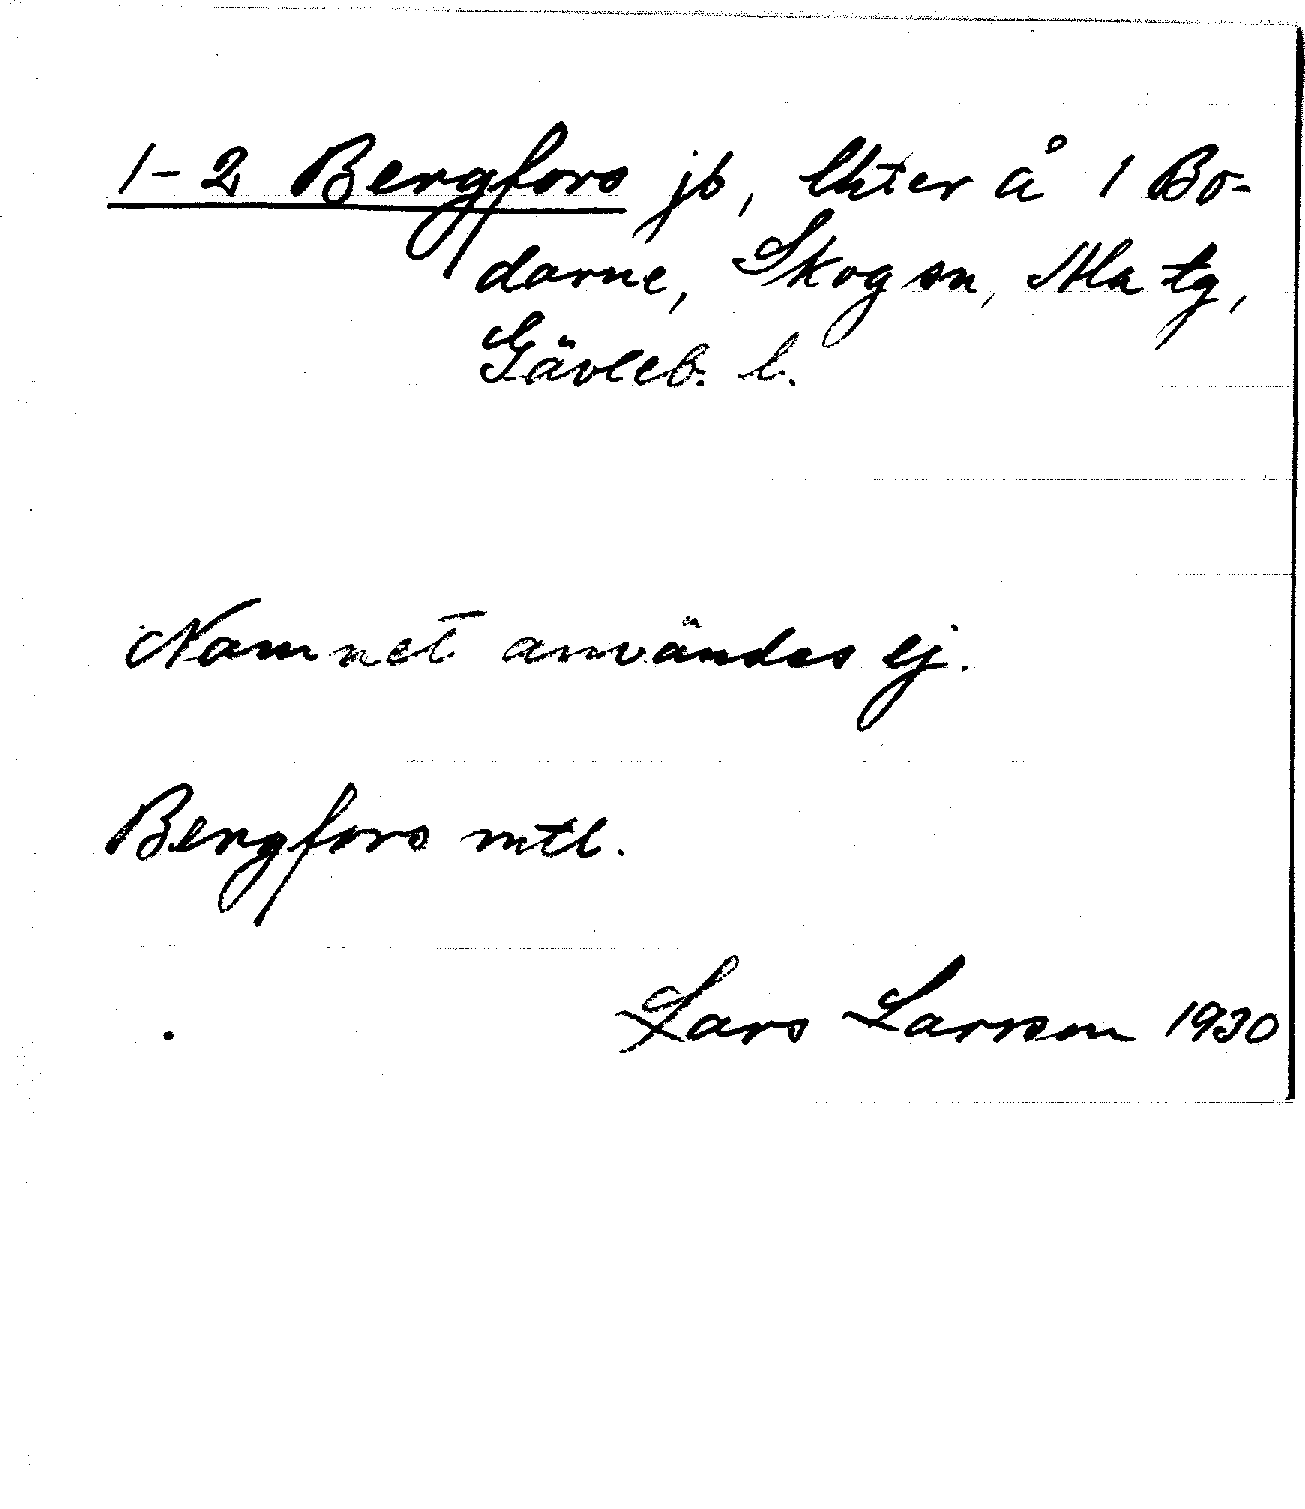 1-2 Bergfors jb, lhter å 1 Bo-
darne, Skog sn, Ala tg,
Gävleb. l.
Namnet användes ej.
Bergfors mtl.
Lars Larsson 1930